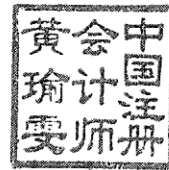 中国注册
会计师
黄瑜雯